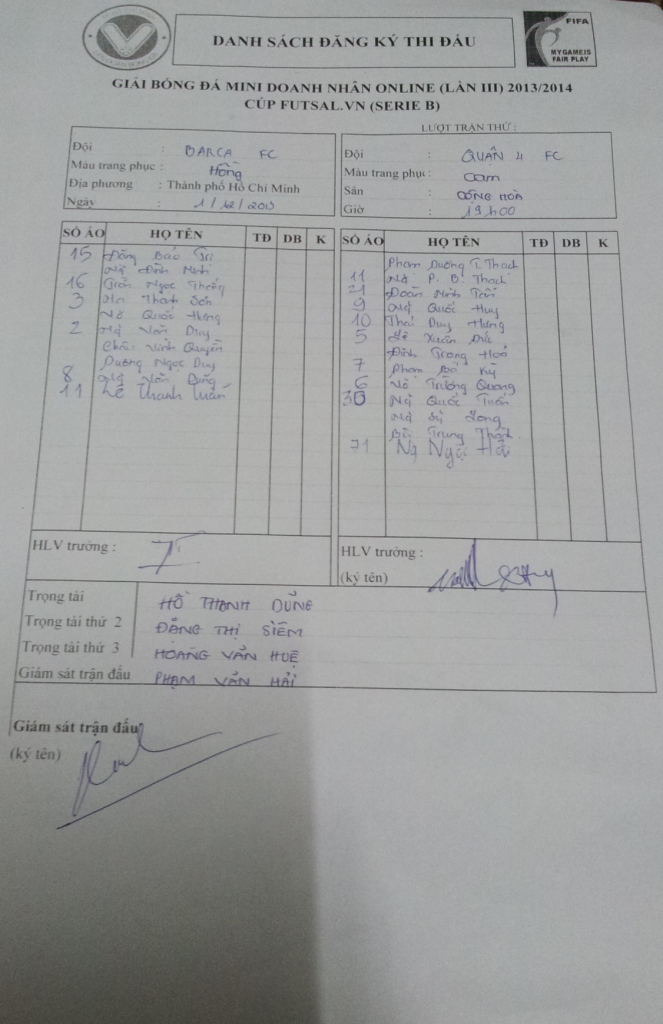 DANH SÁCH ĐĂNG KÝ THI ĐẤU
FIFA
MY GAME IS
FAIR PLAY
GIẢI BÓNG ĐÁ MINI DOANH NHÂN ONLINE (LẦN III) 2013/2014
CÚP FUTSAL.VN (SERIE B)
LƯỢT TRẬN THỨ :
Đội : BARCA FC
Màu trang phục : Hồng
Địa phương : Thành phố Hồ Chí Minh
Ngày : 1/12/2013
Đội : QUẬN 4 FC
Màu trang phục : Cam
Sân : CỘNG HÒA
Giờ : 19h00
SỐ ÁO HỌ TÊN TĐ DB K
15 Đặng Bảo Trí
Ng Đình Minh
16 Trần Ngọc Thống
3 Thanh Sơn
Ng Quốc Hưng
2 Ng Văn Duy
Châu Vinh Quyền
Dương Ngọc Duy
8 Ng Văn Dũng
11 Lê Thanh Tuấn
SỐ ÁO HỌ TÊN TĐ DB K
Phạm Dương T. Thạch
11 Ng P. B. Thạch
21 Đoàn Minh Tấn
9 Ng Quốc Huy
10 Thái Duy Hưng
5 Lê Xuân Đức
Đinh Trọng Hoà
7 Phạm Bá Kỳ
6 Võ Trường Quang
30 Ng Quốc Tuấn
Ng Sỹ Long
Bùi Trung Thành
71 Ng Ngọc Hà
HLV trưởng :
HLV trưởng :
(ký tên)
Trọng tài HỒ THANH DŨNG
Trọng tài thứ 2 ĐẶNG THỊ SIÊM
Trọng tài thứ 3 HOÀNG VĂN HUỆ
Giám sát trận đấu PHẠM VĂN HẢI
Giám sát trận đấu
(ký tên)